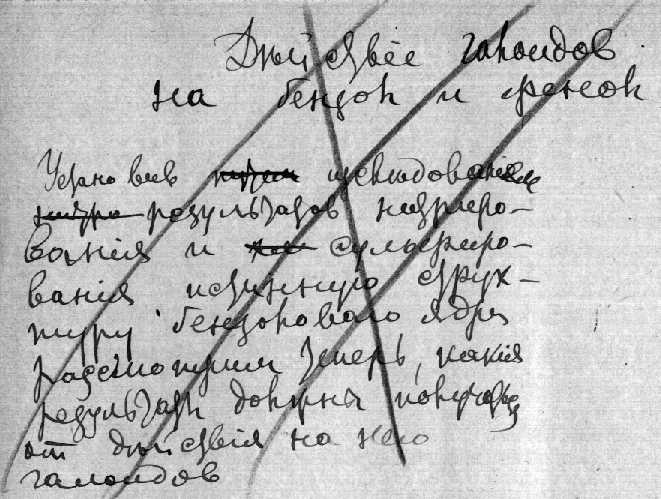 Дѣйствіе галоидов
на бензол и фенол
Установив изслѣдованіем
результатов нитриро-
ванія и сульфиро-
ванія истинную струк-
туру бензолового ядра
разсмотрим теперь, какія
результаты должны получаться
от дѣйствія на него
галоидов